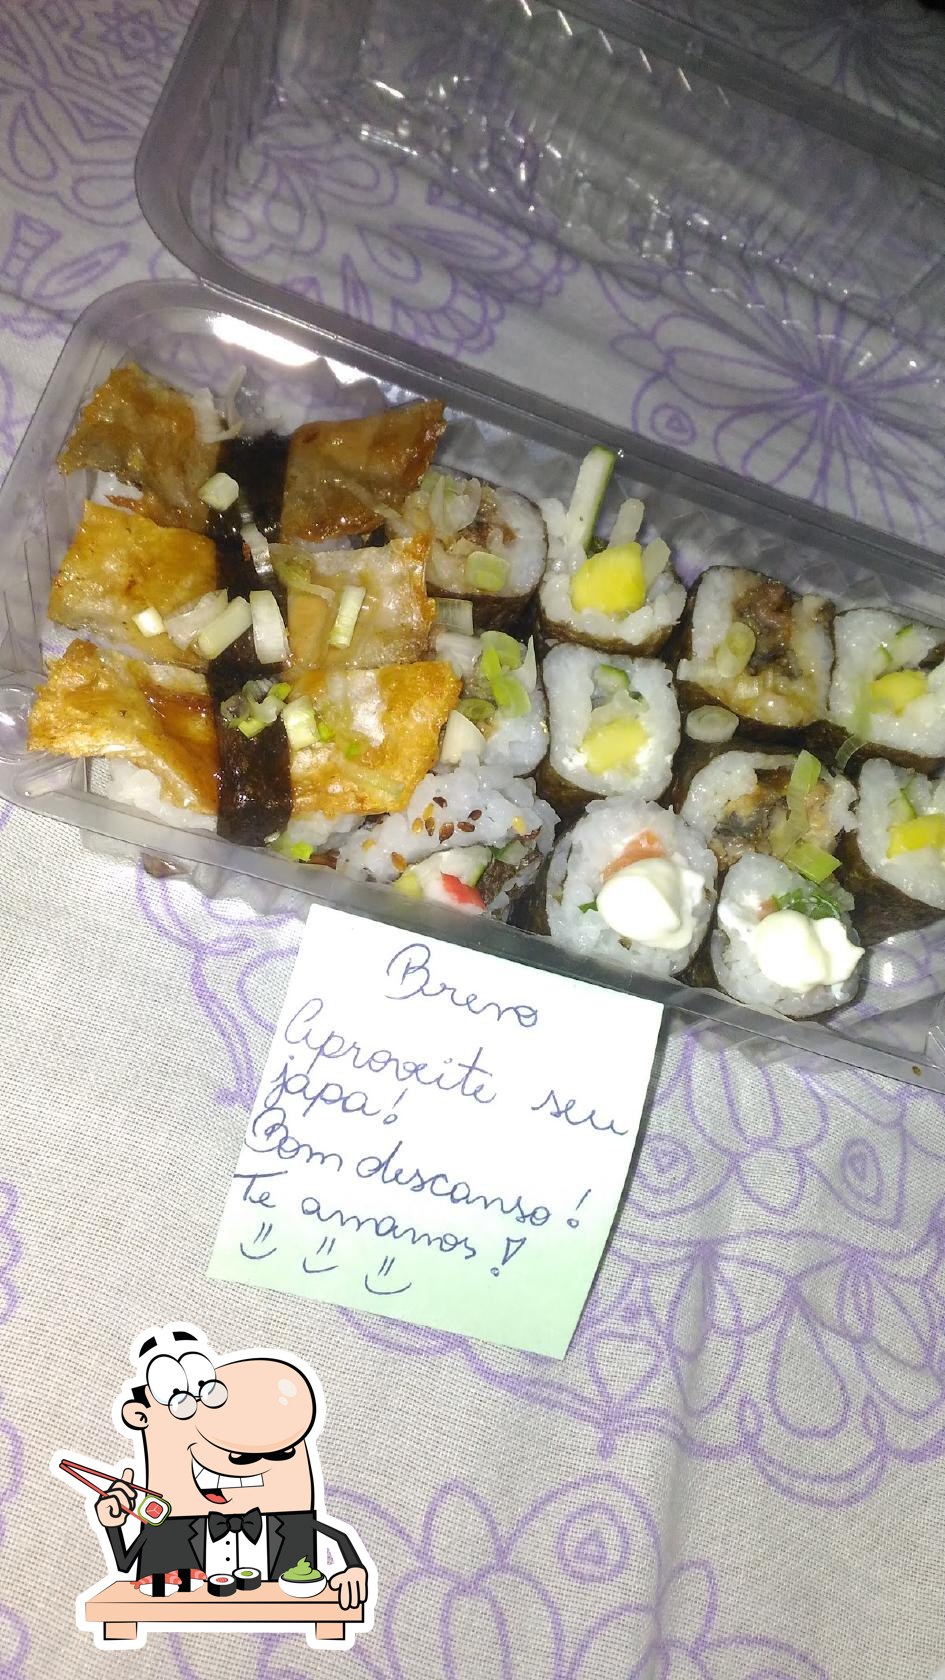 Breno
Aproveite seu
japa!
Bom descanso!
Te amamos!